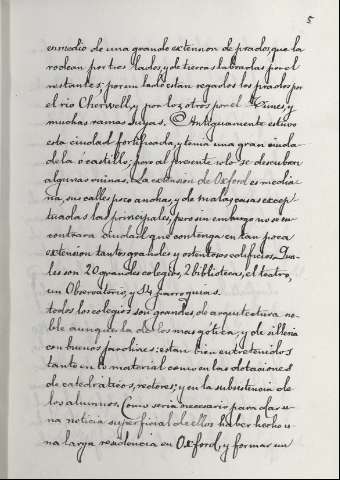 5
en medio de una grande extension de prados, que la
rodean por tres lados, y de tierras labradas por el
restante; por un lado estan regados los prados por
el rio Cherwell, y por los otros por el Times, y
muchas ramas suyas. Antiguamente estuvo
esta ciudad fortificada, y tenia una gran ciuda-
dela ó castillo; pero al presente solo se descubren
algunas ruinas. La extension de Oxford es media-
na, sus calles poco anchas, y de malas casas excep-
tuadas las principales, pero sin embargo no se en-
contrara ciudad que contenga en tan poca
extension tantos grandes y ostentosos edificios. Qua-
les son 20 grandes colegios, 2 bibliotecas, el teatro,
un Observatorio, y 14 parroquias.
todos los colegios son grandes, de arquitectura no-
ble aunque la de los mas gótica, y de silleria
con buenos jardines: estan bien entretenidos
tanto en lo material como en las dotaciones
de catedraticos, rectores; y en la subsistencia de
los alumnos. Como seria necesario para dar u-
na noticia superficial de ellos haber hecho u-
na larga residencia en Oxford, y formar un